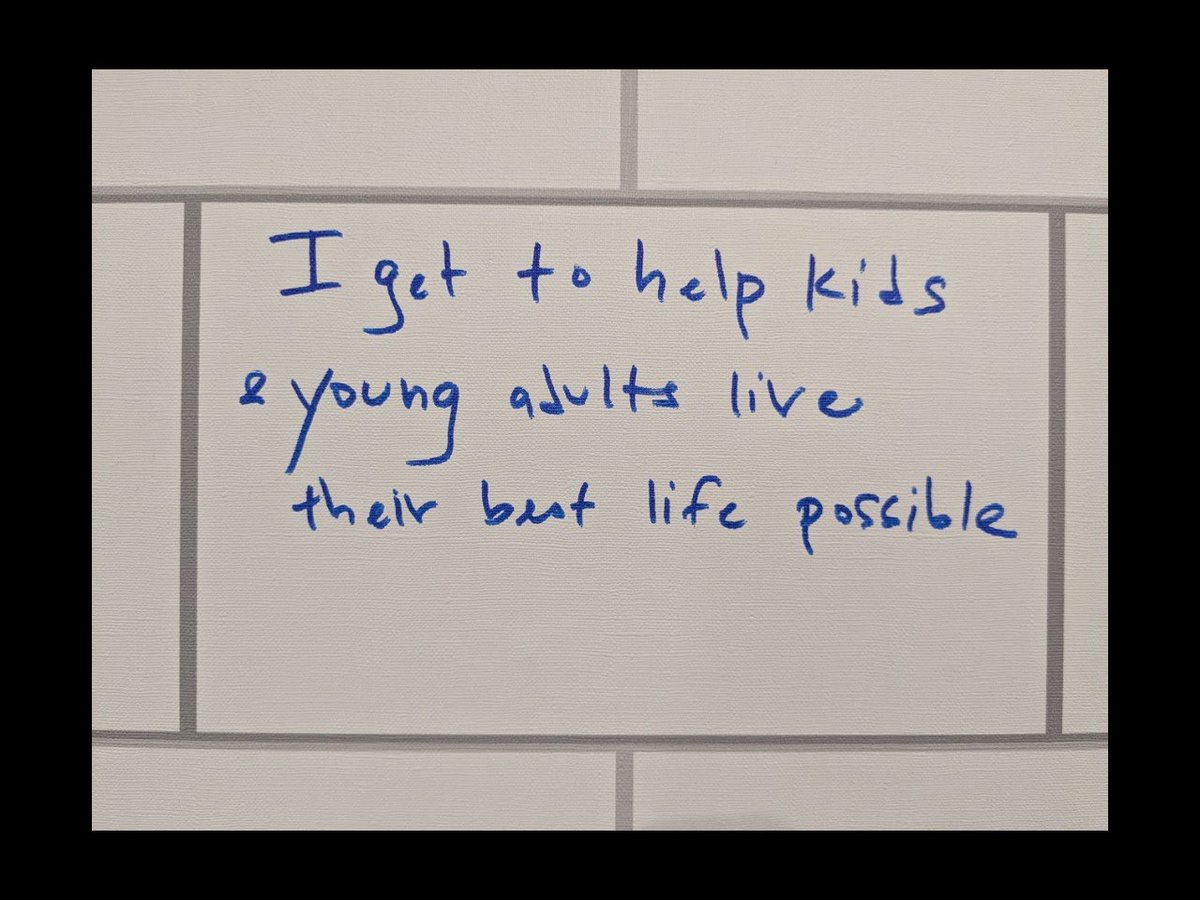 I get to help kids
& young adults live
their best life possible